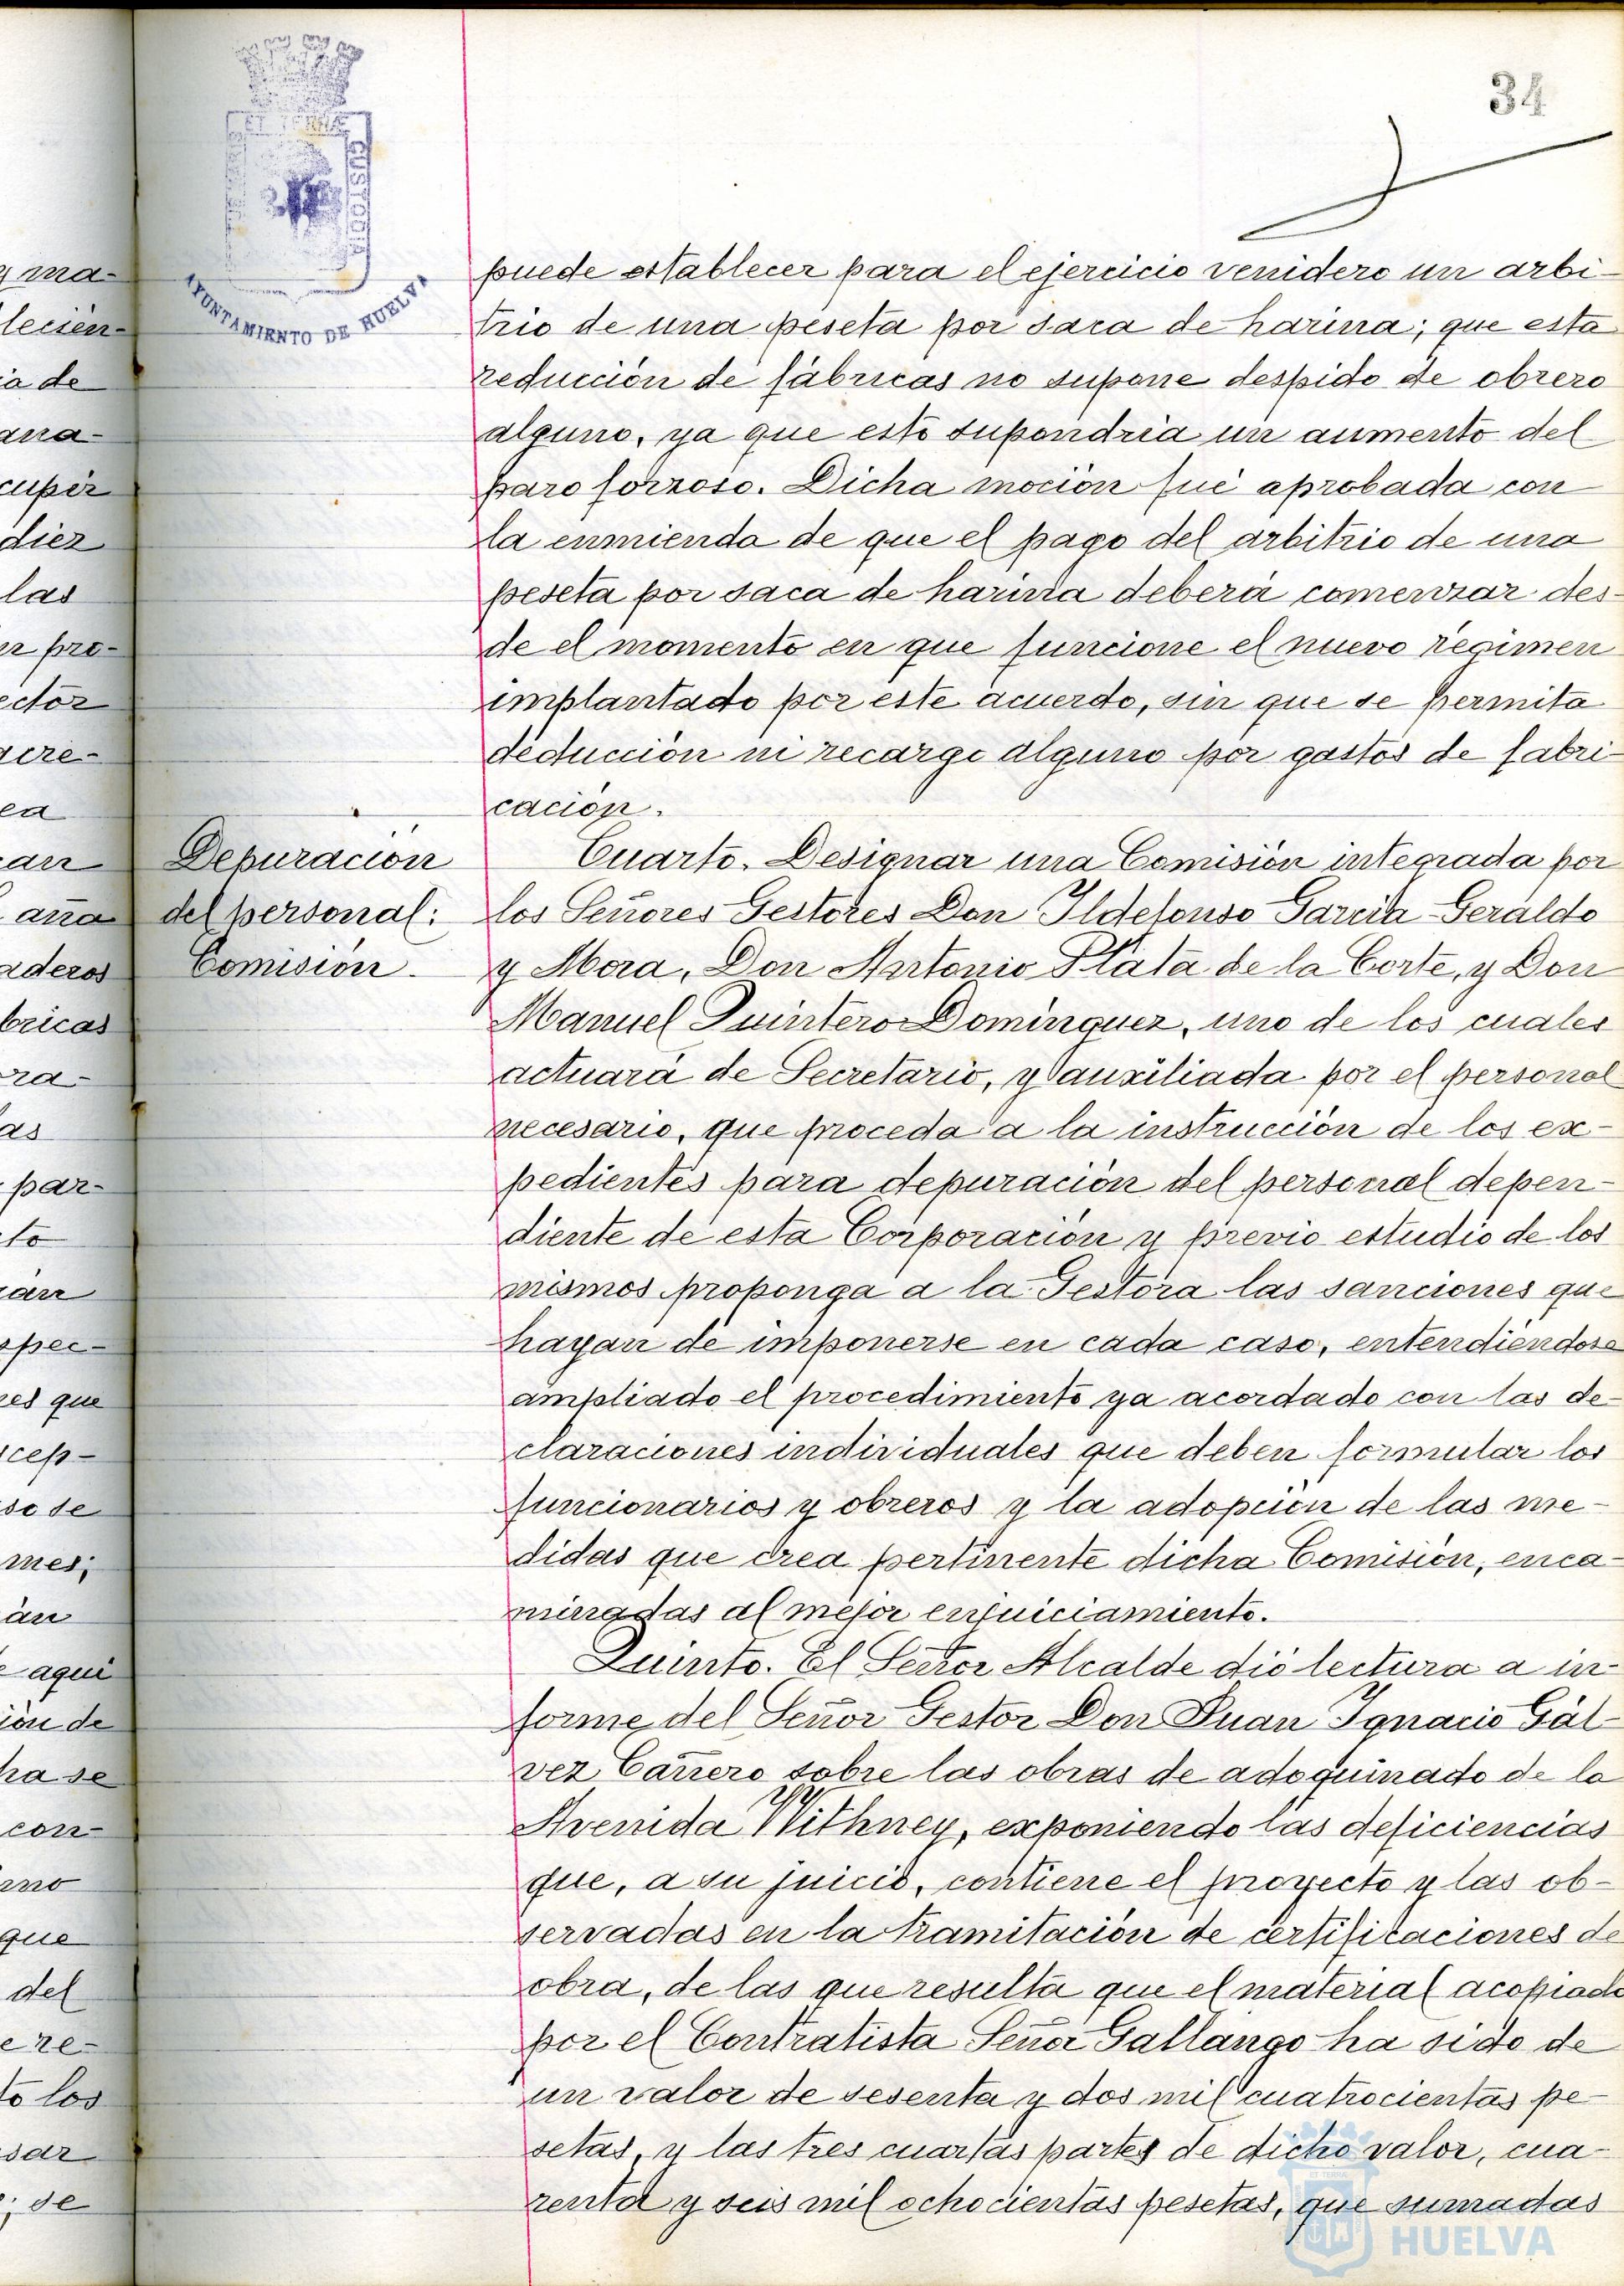 34
ET TERRÆ
CUSTODIA
AYUNTAMIENTO DE HUELVA
puede establecer para el ejercicio venidero un arbi-
trio de una peseta por saca de harina; que esta
reducción de fábricas no supone despido de obrero
alguno, ya que esto supondría un aumento del
paro forzoso. Dicha moción fué aprobada con
la enmienda de que el pago del arbitrio de una
peseta por saca de harina deberá comenzar des-
de el momento en que funcione el nuevo régimen
implantado por este acuerdo, sin que se permita
deducción ni recargo alguno por gastos de fabri-
cación.
Depuración
del personal:
Comisión.
Cuarto. Designar una Comisión integrada por
los Señores Gestores Don Ildefonso García Geraldo
y Mora, Don Antonio Plata de la Corte, y Don
Manuel Quintero Domínguez, uno de los cuales
actuará de Secretario, y auxiliada por el personal
necesario, que proceda a la instrucción de los ex-
pedientes para depuración del personal depen-
diente de esta Corporación y previo estudio de los
mismos proponga a la Gestora las sanciones que
hayan de imponerse en cada caso, entendiendose
ampliado el procedimiento ya acordado con las de-
claraciones individuales que deben formular los
funcionarios y obreros y la adopción de las me-
didas que crea pertinente dicha Comisión, enca-
minadas al mejor enjuiciamiento.
Quinto. El Señor Alcalde dió lectura a in-
forme del Señor Gestor Don Juan Ignacio Gál-
vez Cañero sobre las obras de adoquinado de la
Avenida Withney, exponiendo las deficiencias
que, a su juicio, contiene el proyecto y las ob-
servadas en la tramitación de certificaciones de
obra, de las que resulta que el material acopiado
por el Contratista Señor Gallango ha sido de
un valor de sesenta y dos mil cuatrocientas pe-
setas, y las tres cuartas partes de dicho valor, cua-
renta y seis mil ochocientas pesetas, que sumadas
HUELVA
y ma-
lecien-
ia de
ana-
cupér
diez
las
pro-
ector
acre-
ea
an
aña
aderos
bricas
ra-
as
par-
to
an
spec-
es que
cep-
so se
mes;
án
aqui
ión de
ha se
con-
mo
que
del
e re-
to los
sar
; se